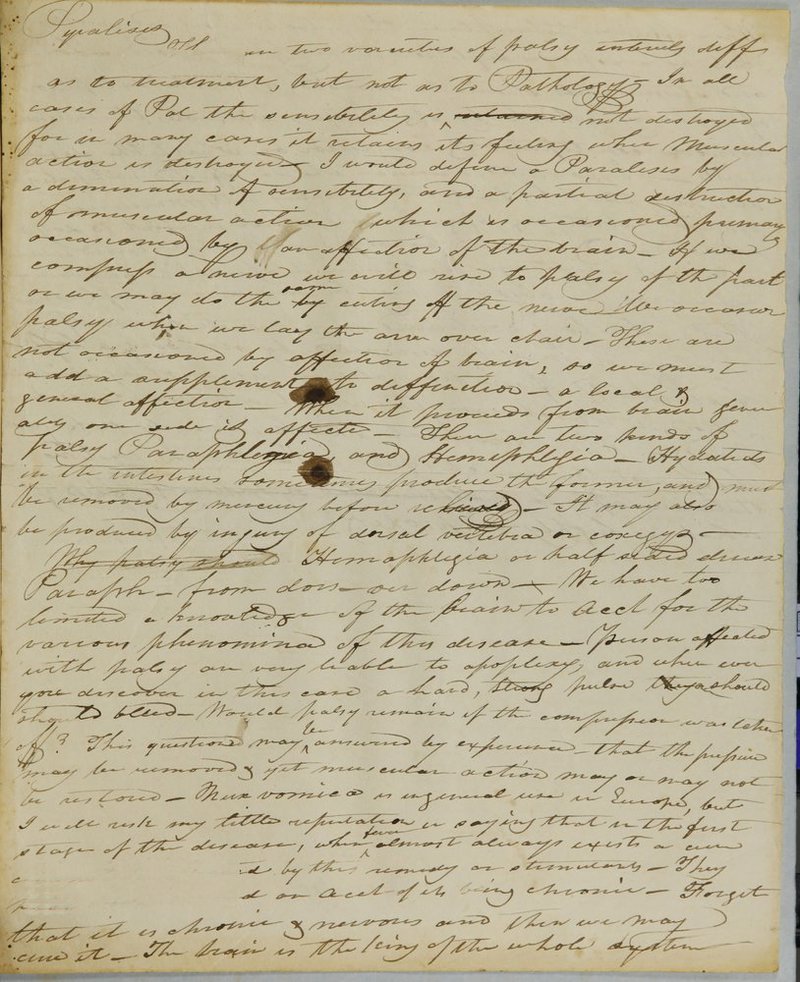 Pyralises
in two varieties of palsy entirely diff
as to treatment, but not as to Pathology - In all
cases of Pal the sensibility is retained not destroyed
for in many cases it retains its feeling when Muscular
action is destroyed I would define a Paralises by
a diminution of sensibility, and a partial destruction
of muscular action which is occasioned primary
occasioned by an affection of the brain - If we
compress a nerve we will rise to palsy of th part
or we may do the same by cuting off the nerve We occasion
palsy when we lay the arm over chair - These are
not occasioned by affection of brain, so we must
add a supplement to deffinction - a local &
general affiction - When it proceeds from brain gener
ally one side is affected - Ther are two kinds of
palsy Paraphlegia, and Hemephlegia - Hydatids
in the intestines sometimes produce th former, and must
be removed by mercury before relieved - It may also
be produced by injury of dorsal vertibra or coxegys -
Why palsy should Hemaphlegia or half sided disease
Paraph - from dors- down - We have too
limited a knowledge of the brain to acct for the
various phenomina of this disease - Person affected
with palsy are very liable to apoplexy, and when ever
you discover in this case a hard, strong pulse they should
should bleed - Would palsy remain if the compression was taken
off? This question may be answered by experience - that the pressure
may be removed & yet muscular action may or may not
be restored - Nux vomica is in general use in Europe, but
I will risk my little reputation in saying that in the first
stage of the disease, when fever almost always exists a cure
by this remedy or stimulants - They
on acct of its being chronic - Forget
that it is chronic & nervous and then we may
cure it - The brain is the king of the whole system